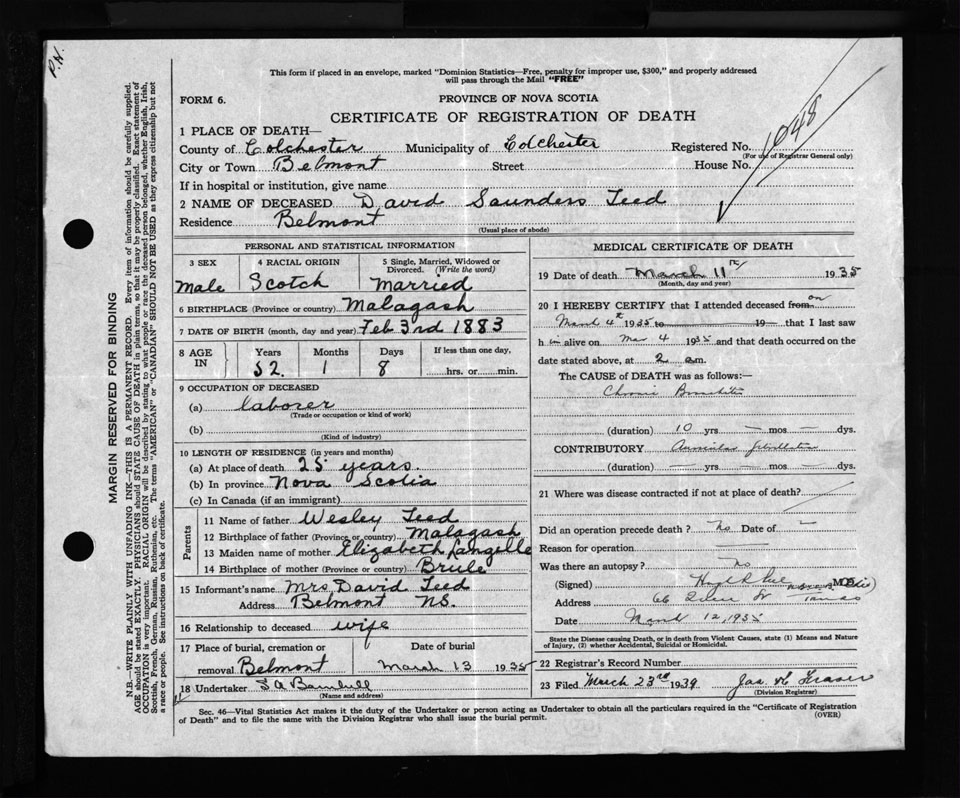 P.H.
MARGIN RESERVED FOR BINDING
N.B.—WRITE PLAINLY WITH UNFADING INK—THIS IS A PERMANENT RECORD. Every item of information should be carefully supplied.
AGE should be stated EXACTLY. PHYSICIANS should STATE CAUSE OF DEATH in plain terms, so that it may be properly classified. Exact statement of
OCCUPATION is very important. RACIAL ORIGIN will be described by stating to what people or race the deceased person belonged, whether English, Irish,
Scottish, French, German, Russian, Ruthenian, etc. The terms "AMERICAN" or "CANADIAN" SHOULD NOT BE USED as they express citizenship but not
a race or people. See instructions on back of certificate.
This form if placed in an envelope, marked "Dominion Statistics—Free, penalty for improper use, $300," and properly addressed
will pass through the Mail "FREE"
FORM 6.
PROVINCE OF NOVA SCOTIA
CERTIFICATE OF REGISTRATION OF DEATH
1 PLACE OF DEATH—
County of Colchester Municipality of Colchester Registered No. 1048
(For use of Registrar General only)
City or Town Belmont Street House No.
If in hospital or institution, give name
2 NAME OF DECEASED David Saunders Teed
Residence Belmont
(Usual place of abode)
PERSONAL AND STATISTICAL INFORMATION
3 SEX 4 RACIAL ORIGIN 5 Single, Married, Widowed or
Divorced. (Write the word)
Male Scotch Married
6 BIRTHPLACE (Province or country) Malagash
7 DATE OF BIRTH (month, day and year) Feb 3rd 1883
8 AGE IN Years Months Days If less than one day,
52 1 8 hrs. or min.
9 OCCUPATION OF DECEASED
(a) laborer
(Trade or occupation or kind of work)
(b)
(Kind of industry)
10 LENGTH OF RESIDENCE (in years and months)
(a) At place of death 25 years.
(b) In province Nova Scotia
(c) In Canada (if an immigrant)
Parents
11 Name of father Wesley Teed
12 Birthplace of father (Province or country) Malagash
13 Maiden name of mother Elizabeth Langelle
14 Birthplace of mother (Province or country) Brule
15 Informant's name Mrs David Teed
Address Belmont NS.
16 Relationship to deceased wife
17 Place of burial, cremation or Date of burial
removal Belmont March 13 1935
18 Undertaker
(Name and address)
MEDICAL CERTIFICATE OF DEATH
19 Date of death March 11th 1935
(Month, day and year)
20 I HEREBY CERTIFY that I attended deceased from on
March 4th 1935 to 19 that I last saw
him alive on Mar 4 1935 and that death occurred on the
date stated above, at 2 a.m.
The CAUSE of DEATH was as follows:—
Chronic Bronchitis
(duration) 10 yrs — mos — dys.
CONTRIBUTORY Auricular fibrillation
(duration) — yrs — mos — dys.
21 Where was disease contracted if not at place of death?
Did an operation precede death? No Date of —
Reason for operation
Was there an autopsy? No
(Signed)
Address
Date March 12, 1935
State the Disease causing Death, or in death from Violent Causes, state (1) Means and Nature
of Injury, (2) whether Accidental, Suicidal or Homicidal.
22 Registrar's Record Number
23 Filed March 23rd 1939 Jas. H Fraser
(Division Registrar)
Sec. 46—Vital Statistics Act makes it the duty of the Undertaker or person acting as Undertaker to obtain all the particulars required in the "Certificate of Registration
of Death" and to file the same with the Division Registrar who shall issue the burial permit.
(OVER)